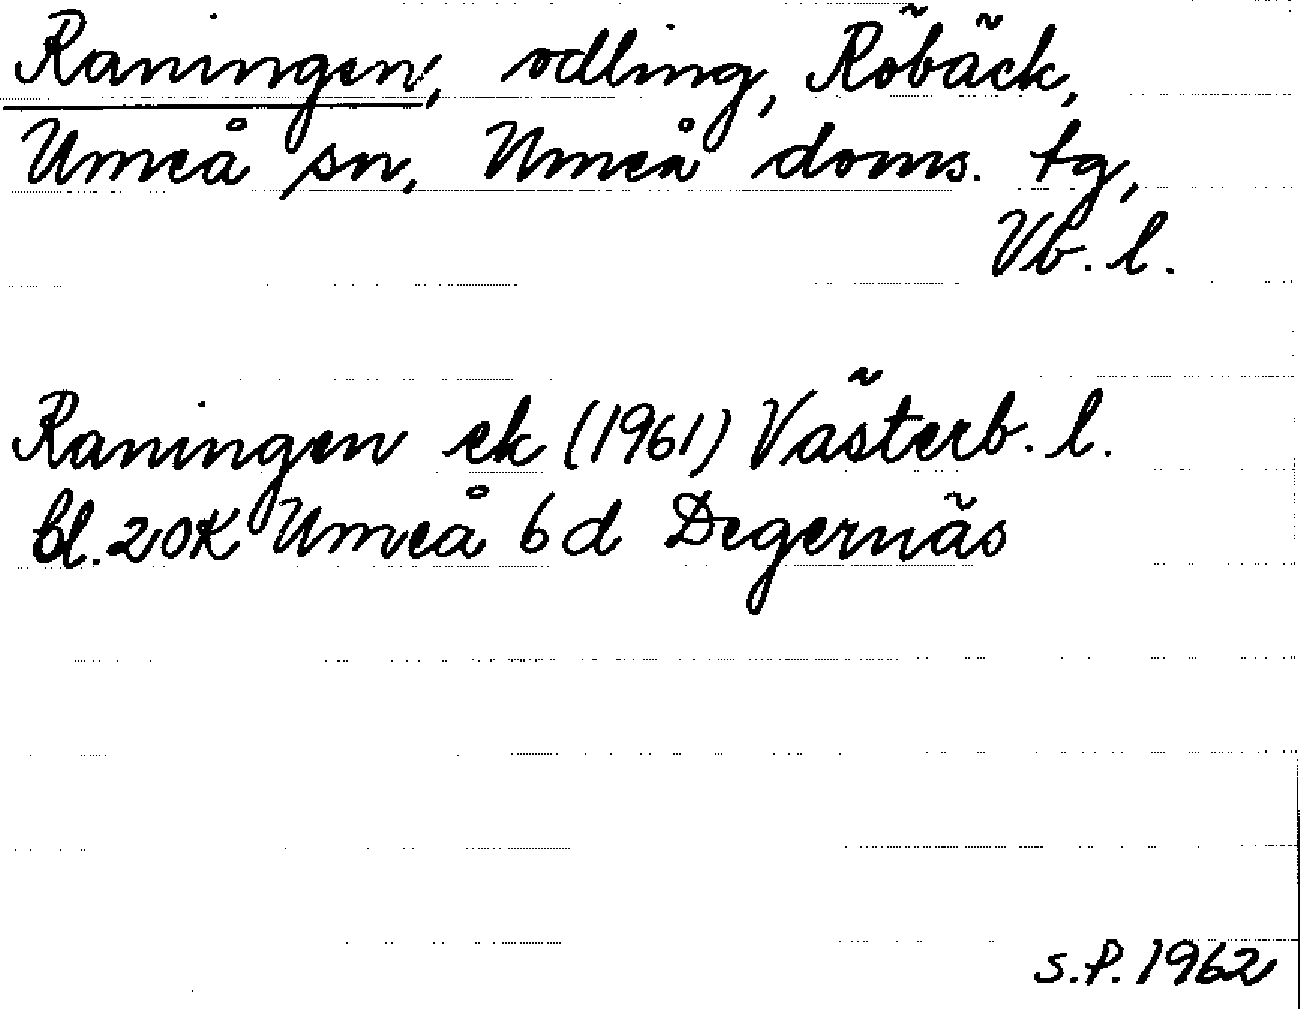 Raningen, odling, Röbäck,
Umeå sn, Umeå doms. tg,
Vb. l.
Raningen ek (1961) Västerb. l.
bl. 20K Umeå 6d Degernäs
S.P. 1962